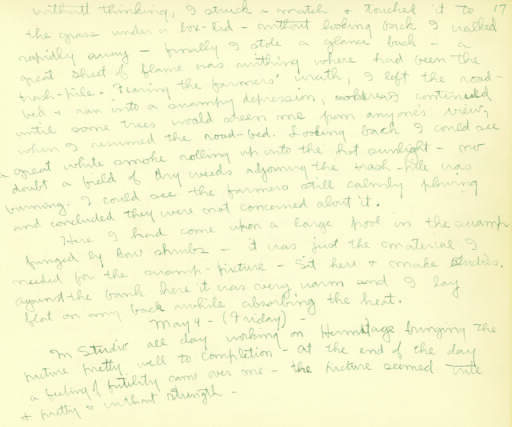 without thinking, I struck a match & touched it to 17
the grass under a box-lid - without looking back I walked
rapidly away - finally I stole a glance back - a
great sheet of flame was writhing where had been the
trash-pile. Fearing the farmers' wrath, I left the road-
bed & ran into a swampy depression, continued
until some trees would screen me from anyone's view,
when I resumed the road-bed. Looking back I could see
a great white smoke rolling up into the hot sunlight - no
doubt a field of dry weeds adjoining the trash-pile was
burning. I could see the farmers still calmly plowing
and concluded they were not concerned about it.
Here I had come upon a large pool in the swamp
fringed by low shrubs - it was just the material I
needed for the swamp-picture - Sit here & make studies.
against the bank here it was very warm and I lay
flat on my back while absorbing the heat.
May 4 - (Friday) -
In Studio all day working on Hermitage bringing the
picture pretty well to completion - at the end of the day
a feeling of futility came over me - the picture seemed trite
& pretty & without strength -